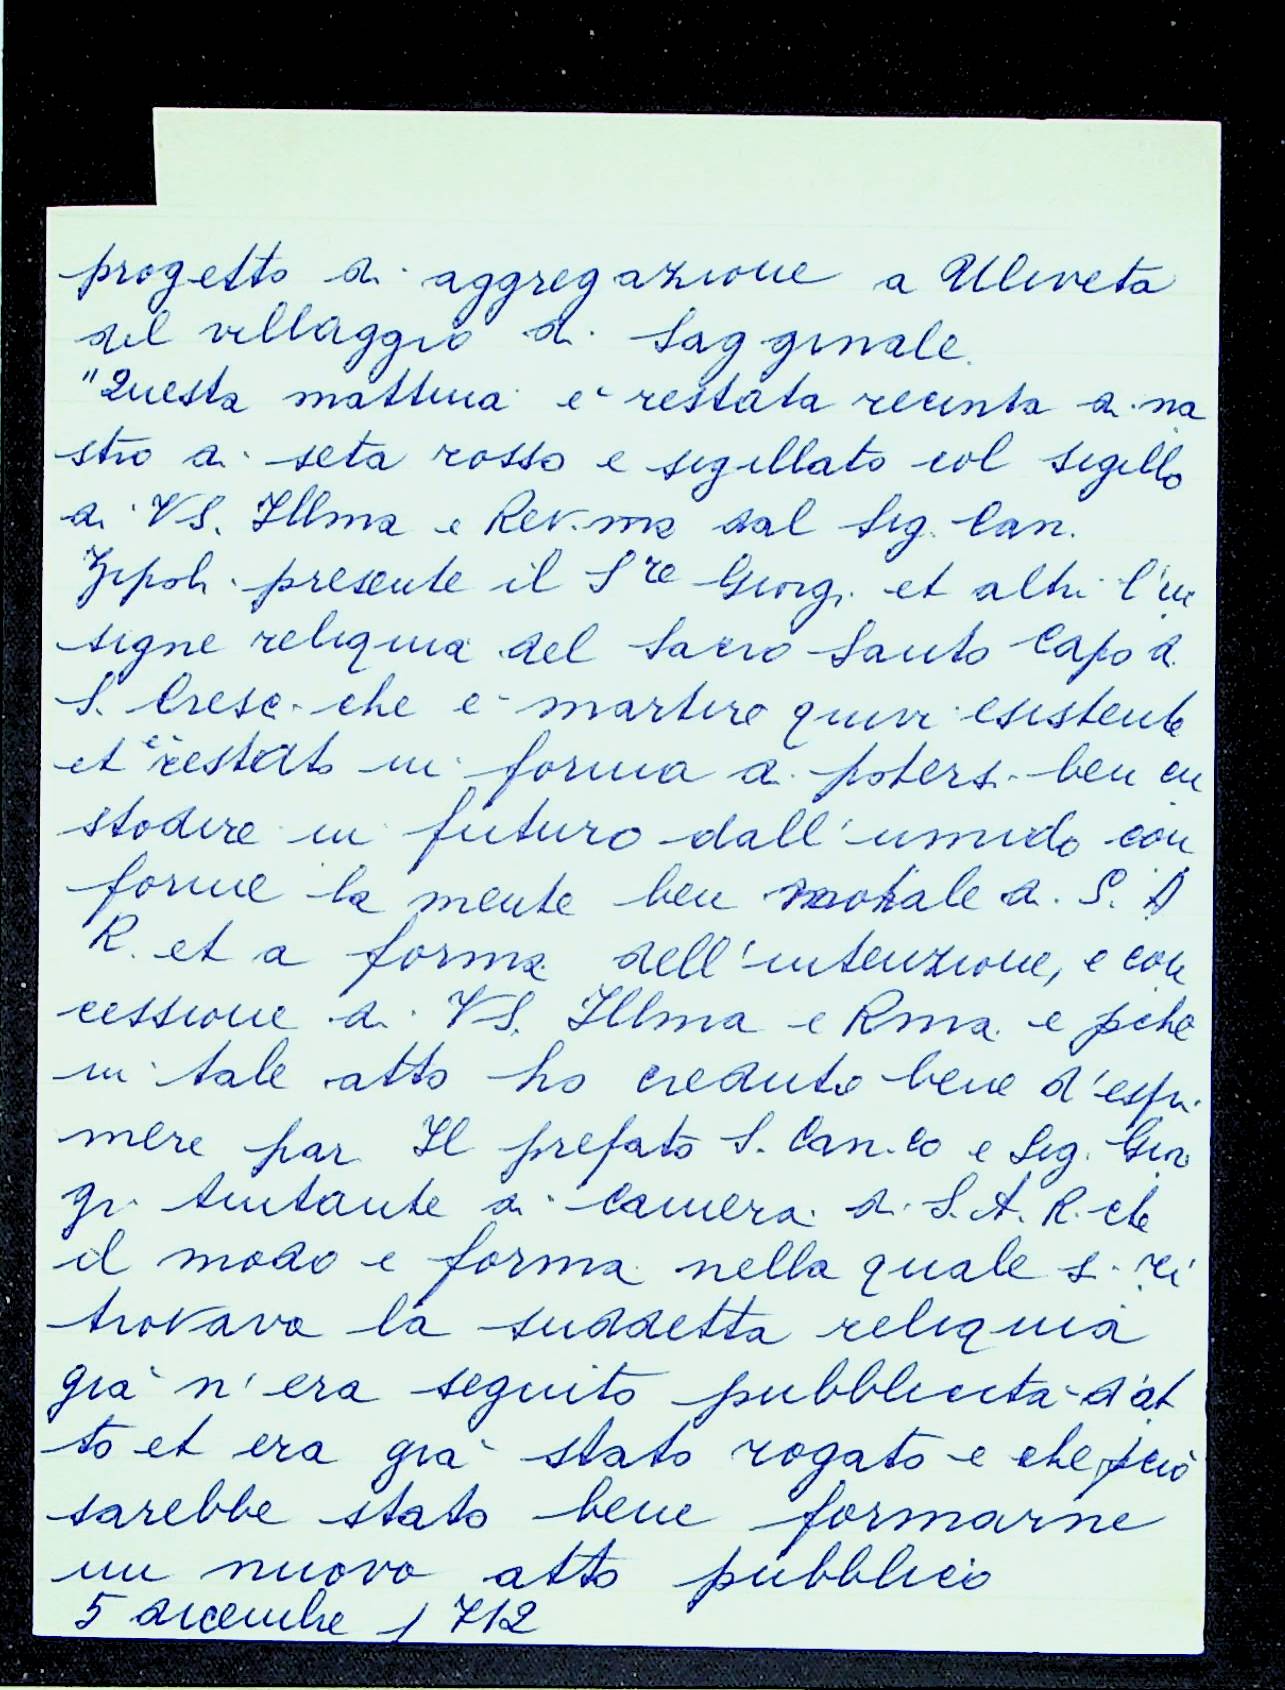 progetto di aggregazione a Uliveta
del villaggio di Sagginale.
"Questa mattina è restata recinta di na
stro di seta rosso e sigillato col sigillo
di VS. Illma e Rev.ma dal Sig. Can.
Zipoli presente il Sre Giorgi et altri l'in
signe reliquia del Sacro Santo Capo di
S. Cresc. che è martire quivi esistente
et è restato in forma di potersi ben cu
stodire in futuro dall'umido con
forme la mente ben di S. A
R. et a forma dell'intenzione, e con
cessione di VS. Illma e Rma e pche
in tale atto ho creduto bene d'espri
mere par Il prefato S. Can.co e Sig. Gior
gi aiutante di Camera di S.A.R. che
il modo e forma nella quale si ri
trovava la suddetta reliquia
già n'era seguito pubblicità d'at
to et era già stato rogato e che pciò
sarebbe stato bene formarne
un nuovo atto pubblico
5 dicembre 1712